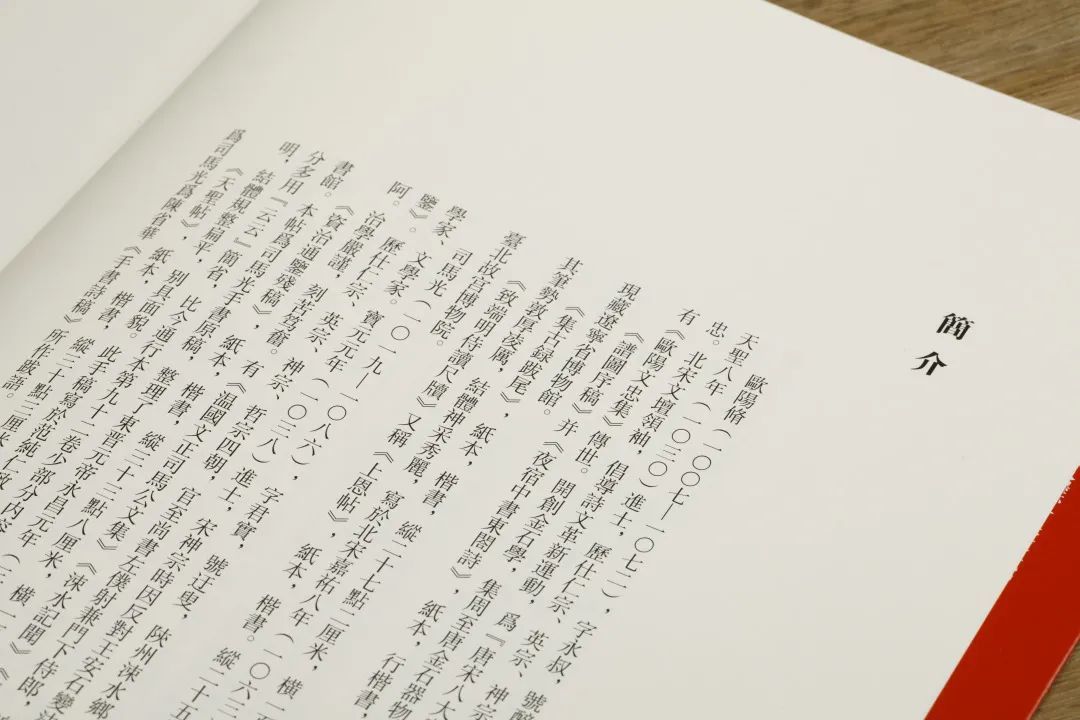 簡介
歐陽脩（一〇〇七—一〇七二），字永叔，號醉
天聖八年（一〇三〇）進士，歷仕仁宗、英宗、神宗
忠。北宋文壇領袖，倡導詩文革新運動，爲『唐宋八大
有《歐陽文忠集》傳世。開創金石學，集周至唐金石器物
《譜圖序稿》并《夜宿中書東閣詩》，紙本，行楷書，
現藏遼寧省博物館。
《集古録跋尾》，紙本，楷書，縱二十七點二厘米，橫一百
其筆勢敦厚凌厲，結體神采秀麗，寫於北宋嘉祐八年（一〇六三
《致端明侍讀尺牘》又稱《上恩帖》，紙本，楷書。縱二十五
臺北故宮博物院。
司馬光（一〇一九—一〇八六），字君實，號迂叟，陝州涑水鄉
學家、文學家。寶元元年（一〇三八）進士，宋神宗時因反對王安石變法
鑒》。歷仕仁宗、英宗、神宗、哲宗四朝，官至尚書左僕射兼門下侍郎，
阿。治學嚴謹，刻苦篤奮。有《温國文正司馬公文集》《涑水記聞》《
《資治通鑒殘稿》，紙本，楷書，縱三十三點八厘米，橫一
書館。本帖爲司馬光手書原稿，整理了東晉元帝永昌元年（三
分多用『云云』簡省，比今通行本第九十二卷少部分內容
明，結體規整扁平，別具面貌。此手稿寫於范純仁致
《天聖帖》，紙本，楷書，縱三十點三厘米
爲司馬光爲陳省華《手書詩稿》所作跋語。